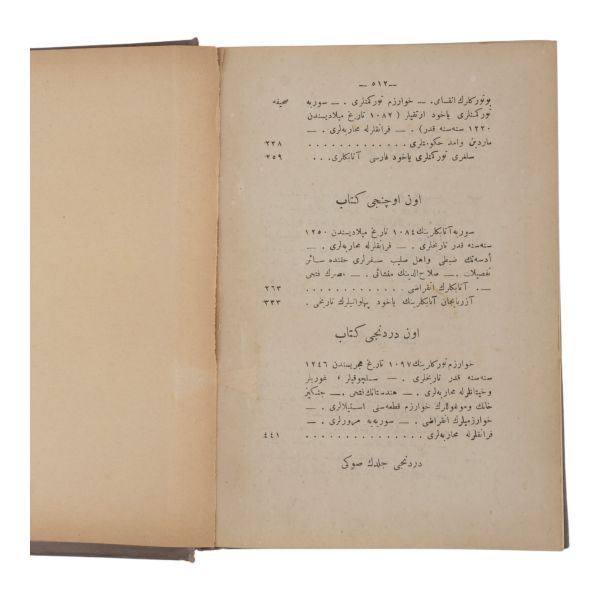 — ٥١٢ —
بو توركلرك انقسامی. — خوارزم توركمنلری . — سوریه صحیفه
توركمنلری یاخود ارتقیلر ( ١٠٨٢ تاریخ میلادیسندن
١٢٢٠ سنه سنه قدر ) . — فرانقلرله محاربه لری . —
ماردین وآمد حكومتلری . . . . . . . . . . . . ٢٣٨
سلغری توركمنلری یاخود فارسی آتابكلری . . . ٢٥٩
اون اوچنجی كتاب
سوریه آتابكلرینك ١٠٨٤ تاریخ میلادیسندن ١٢٥٠
سنه سنه قدر تاریخلری . — فرانقلرله محاربه لری . —
أدسه نك ضبطی واهل صلیب سفرلری حقنده سائر
تفصیلات . — صلاح الدینك منشائی . — مصرك فتحی
— . آتابكلرك انقراضی . . . . . . . . . . . . . ٢٦٣
آذربایجان آتابكلرینك یاخود پهلوانیلرك تاریخی . ٣٣٣
اون دردنجی كتاب
خوارزم توركلرینك ١٠٩٧ تاریخ هجریسندن ١٢٤٦
سنه سنه قدر تاریخلری . — سلجوقیلر ، غوریلر
وختانلرله محاربه لری . — هندستانك فتحی . — جنكیز
خانك وموغوللرك خوارزم قطعه سنی استیلالری . —
خوارزمیلرك انقراضی . — سوریه یه مرورلری . —
فرانقلرله محاربه لری . . . . . . . . . . . . . . ٤٤١
دردنجی جلدك صوكی